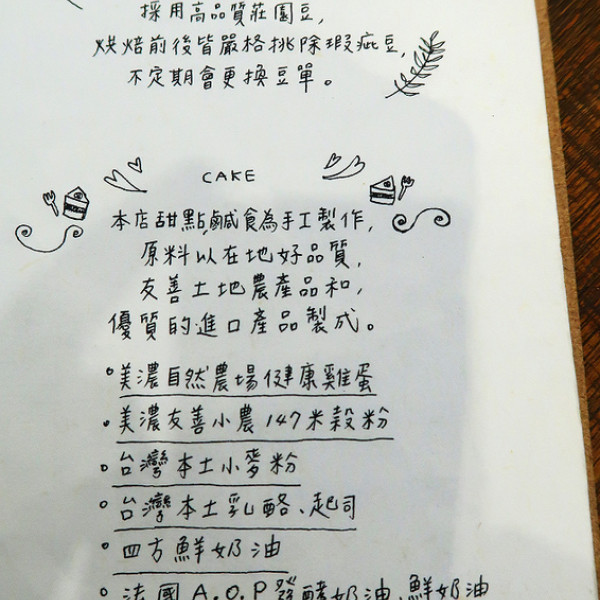 採用高品質莊園豆,
烘焙前後皆嚴格挑除瑕疵豆,
不定期會更換豆單。
CAKE
本店甜點,鹹食為手工製作,
原料以在地好品質,
友善土地農產品和,
優質的進口產品製成。
美濃自然農場健康雞蛋
美濃友善小農147米穀粉
台灣本土小麥粉
台灣本土乳酪、起司
四方鮮奶油
法國A.O.P發酵奶油、鮮奶油